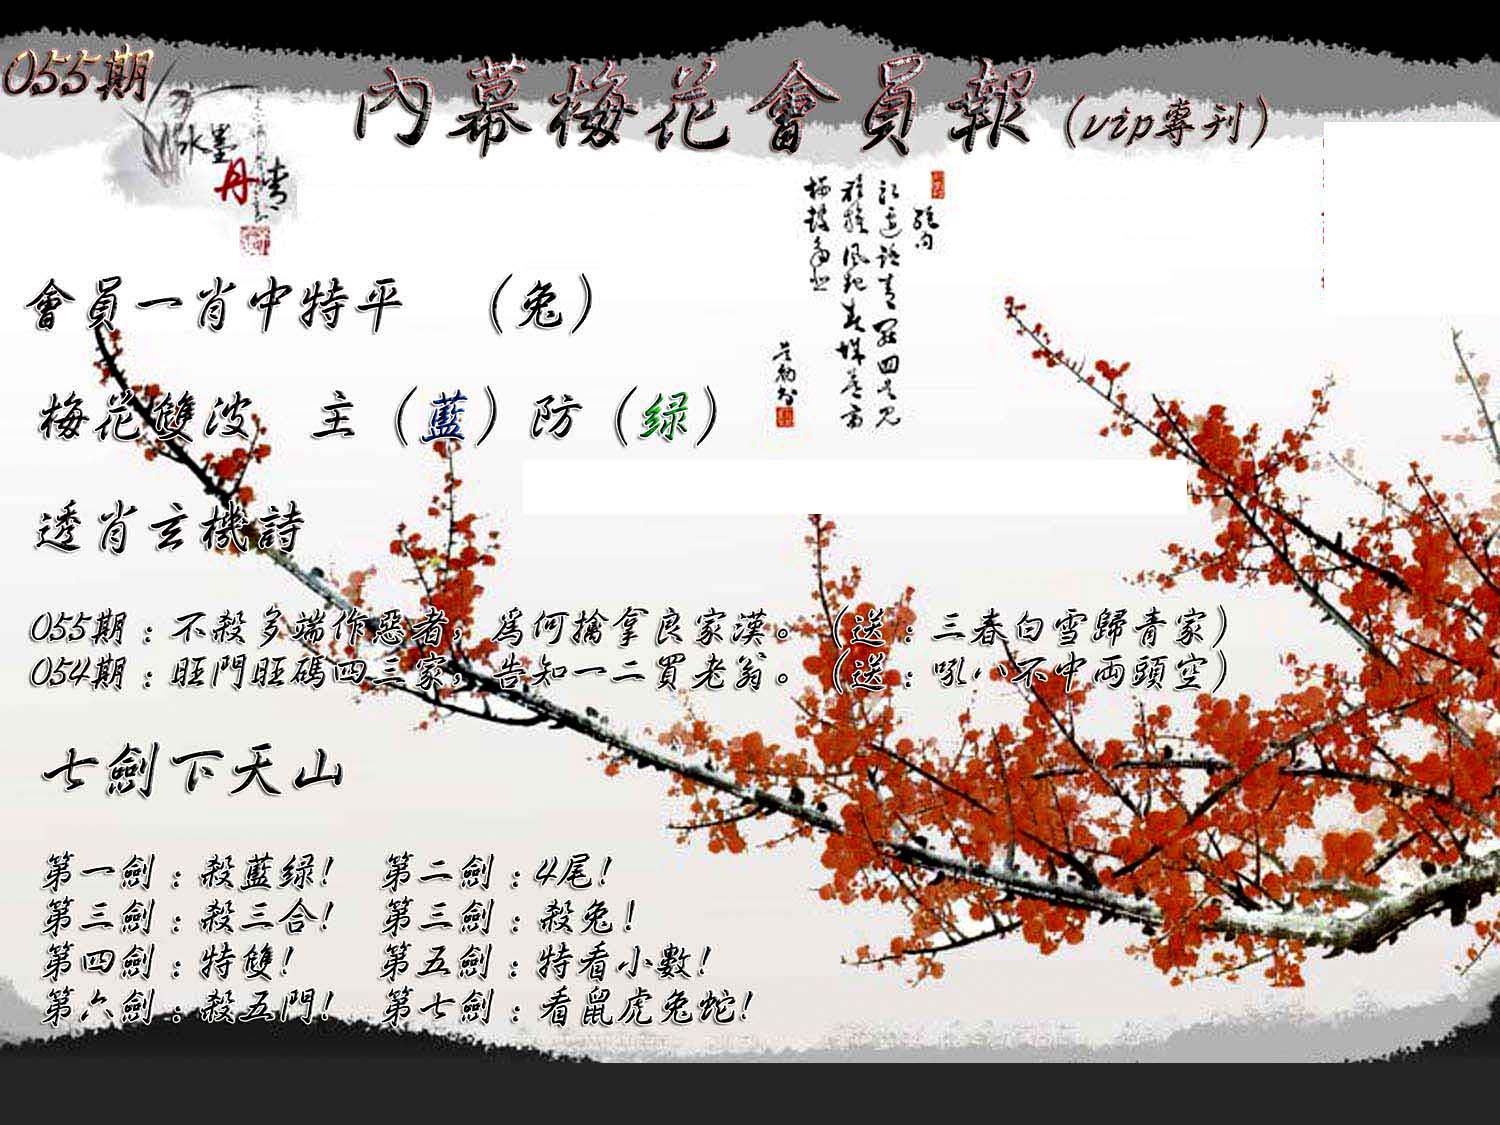 055期
內幕梅花會員報（vip專刊）
水墨
丹青
會員一肖中特平 （兔）
梅花雙波 主（藍）防（绿）
透肖玄機詩
055期：不殺多端作惡者，爲何擒拿良家漢。（送：三春白雪歸青家）
054期：旺門旺碼四三家，告知一二買老翁。（送：吼八不中兩頭空）
七劍下天山
第一劍：殺藍绿! 第二劍：4尾!
第三劍：殺三合! 第三劍：殺兔!
第四劍：特雙! 第五劍：特看小數!
第六劍：殺五門! 第七劍：看鼠虎兔蛇!